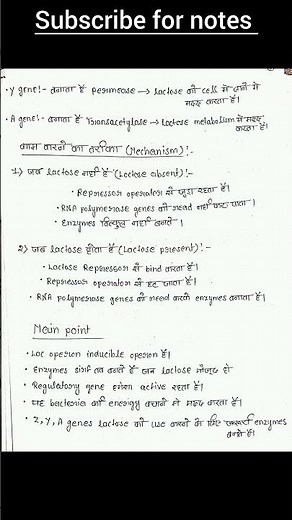 Subscribe for notes
• Y gene!- बनाता है permease → lactose को cell में लाने में
मदद करता है।
• A gene!- बनाता है Transacetylase → Lactose metabolism में मदद
करता है।
काम करने का तरीका (Mechanism)!-
1) जब lactose नहीं है (Lactose absent)!-
• Repressor operator से जुड़ा रहता है।
• RNA polymerase genes को read नहीं कर पाता।
• Enzymes बिल्कुल नहीं बनते।
2) जब lactose होता है (Lactose present)!-
• Lactose Repressor से bind करता है।
• Repressor operator से हट जाता है।
• RNA polymerase genes को read करके enzymes बनाता है।
Main point
• Lac operon inducible operon है।
• Enzymes सिर्फ तब बनते हैं जब lactose मौजूद हो
• Regulatory gene हमेशा active रहता है।
• यह bacteria को energy बचाने में मदद करता है।
• Z, Y, A genes lactose को use करने के लिए जरूरी enzymes
बनाते हैं।